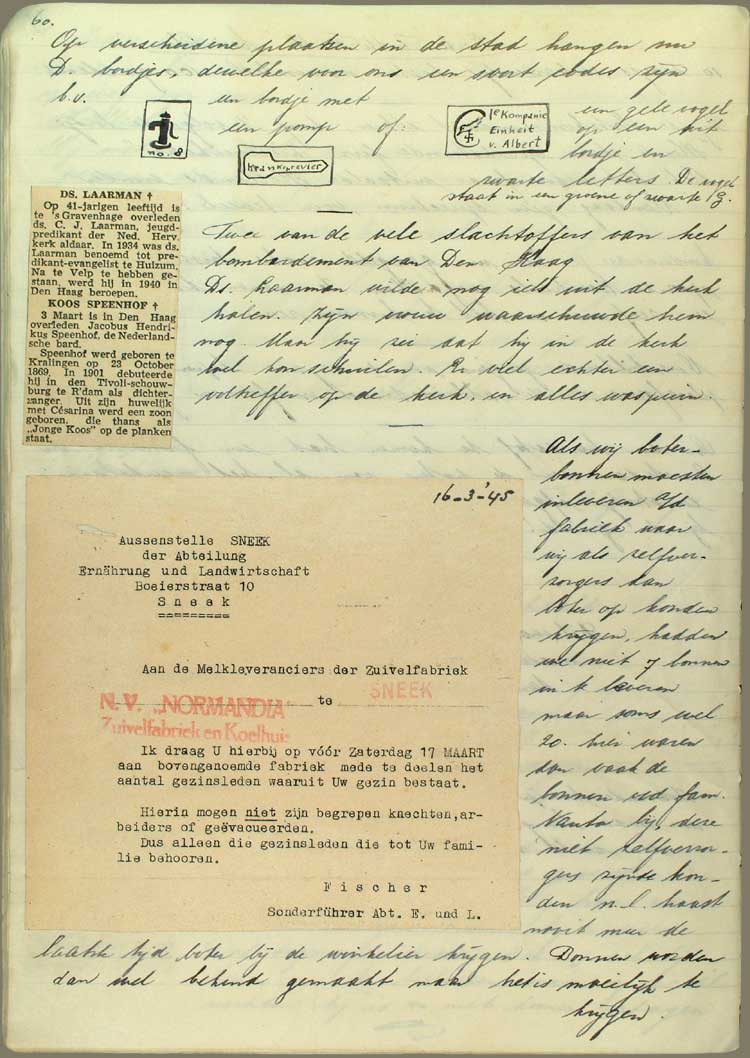 60.
Op verscheidene plaatsen in de stad hangen nu
D. bordjes, dewelke voor ons een soort codes zijn
b.v.
een bordje met
een pomp of:
no. 8
Krankenrevier
1e Kompanie
Einheit
v. Albert
een gele vogel
op een wit
bordje en
zwarte letters. De vogel
staat in een groene of zwarte
DS. LAARMAN †
Op 41-jarigen leeftijd is
te 's Gravenhage overleden
ds. C. J. Laarman, jeugd-
predikant der Ned. Herv.
kerk aldaar. In 1934 was ds.
Laarman benoemd tot pre-
dikant-evangelist te Huizum.
Na te Velp te hebben ge-
staan, werd hij in 1940 in
Den Haag beroepen.
KOOS SPEENHOF †
3 Maart is in Den Haag
overleden Jacobus Hendri-
kus Speenhof, de Nederland-
sche bard.
Speenhof werd geboren te
Kralingen op 23 October
1869. In 1901 debuteerde
hij in den Tivoli-schouw-
burg te R'dam als dichter-
zanger. Uit zijn huwelijk
met Césarina werd een zoon
geboren, die thans als
„Jonge Koos" op de planken
staat.
Twee van de vele slachtoffers van het
bombardement van Den Haag
Ds. Laarman wilde nog iets uit de kerk
halen. Zijn vrouw waarschuwde hem
nog. Maar hij zei dat hij in de kerk
wel kon schuilen. Er viel echter een
voltreffer op de kerk, en alles was puin.
Als wij boter-
bonnen moesten
inleveren a/d
fabriek waar
wij als zelfver-
zorgers dan
boter op konden
krijgen, hadden
we niet 7 bonnen
in te leveren
maar soms wel
20. hier waren
dan vaak de
bonnen v/d fam.
Nauta bij, deze
niet zelfverzor-
gers zijnde kon-
den n.l. haast
nooit meer de
laatste tijd boter bij de winkelier krijgen. Bonnen worden
dan wel bekend gemaakt maar het is moeilijk te
krijgen.
16-3-'45
Aussenstelle SNEEK
der Abteilung
Ernährung und Landwirtschaft
Boeierstraat 10
S n e e k
=========
Aan de Melkleveranciers der Zuivelfabriek
te SNEEK
N.V. „NORMANDIA
Zuivelfabriek en Koelhuis
Ik draag U hierbij op vóór Zaterdag 17 MAART
aan bovengenoemde fabriek mede te deelen het
aantal gezinsleden waaruit Uw gezin bestaat.
Hierin mogen niet zijn begrepen knechten,ar-
beiders of geëvacueerden.
Dus alleen die gezinsleden die tot Uw fami-
lie behooren.
F i s c h e r
Sonderführer Abt. E. und L.